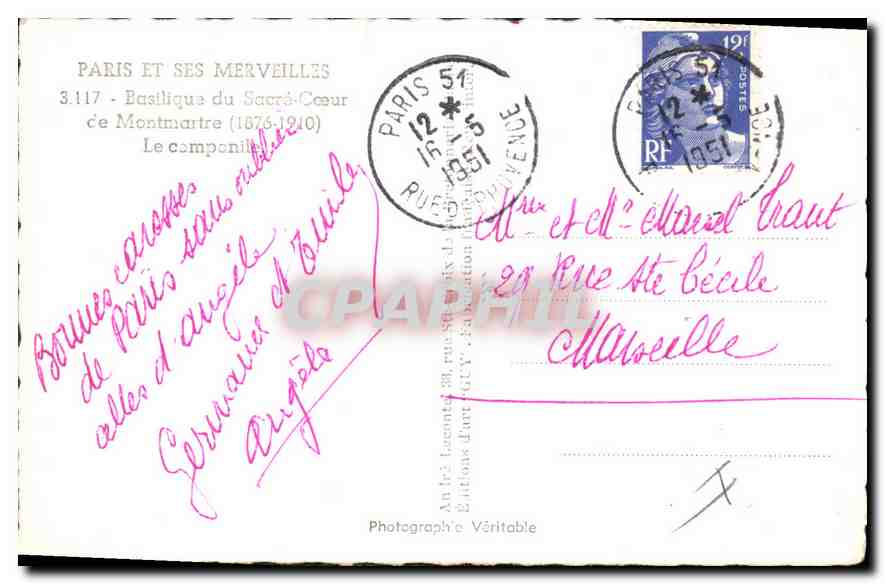 PARIS ET SES MERVEILLES
3.117 - Basilique du Sacré-Cœur
de Montmartre (1876-1910)
Le companile
Bonnes caresses
de Paris sans oublier
celles d'angèle
Germaine et Emile
Angèle
PARIS 51
12 *
16 - 5
1951
RUE D PROVENCE
12f
POSTES
RF
PARIS 51
12 *
16 - 5
1951
Mme et Mr Marcel Traut
29 Rue Ste Cécile
Marseille
André Leconte, 38, rue Ste-Croix de la
Editions d'art "GUY"
CPAPHIL
Photographie Véritable